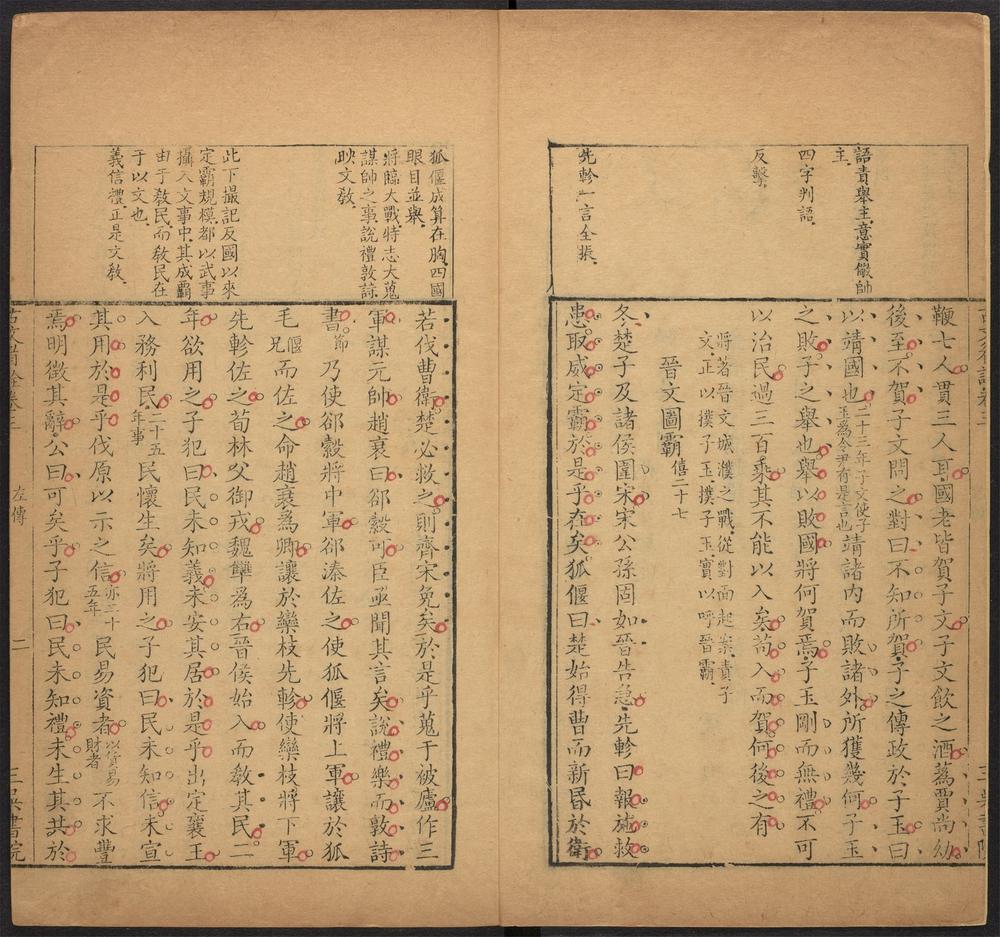 語責舉主意實儆帥
主
四字判語
反擊
先軫一言全振
鞭七人貫三人耳國老皆賀子文子文飲之酒蒍賈尚幼
後至不賀子文問之對曰不知所賀子之傳政於子玉曰
以靖國也二十三年子文使子玉爲令尹有是言也靖諸內而敗諸外所獲幾何子玉
之敗子之舉也舉以敗國將何賀焉子玉剛而無禮不可
以治民過三百乘其不能以入矣苟入而賀何後之有
將著晉文城濮之戰從對面起案責子
文正以撲子玉撲子玉實以呼晉霸
晉文圖霸僖二十七
冬楚子及諸侯圍宋宋公孫固如晉告急先軫曰報施救
患取威定霸於是乎在矣狐偃曰楚始得曹而新昏於衛
狐偃成算在胸四國
眼目並舉
將臨大戰特志大蒐
謀帥之事說禮敦詩
映文敎
此下撮記反國以來
定霸規模都以武事
攝入文事中其成霸
由于敎民而敎民在
于以文也
義信禮正是文敎
若伐曹衛楚必救之則齊宋免矣於是乎蒐于被廬作三
軍謀元帥趙衰曰郤縠可臣亟聞其言矣說禮樂而敦詩
書節乃使郤縠將中軍郤溱佐之使狐偃將上軍讓於狐
毛偃兄而佐之命趙衰爲卿讓於欒枝先軫使欒枝將下軍
先軫佐之荀林父御戎魏犨爲右晉侯始入而敎其民二
年欲用之子犯曰民未知義未安其居於是乎出定襄王
入務利民二十五年事民懷生矣將用之子犯曰民未知信未宣
其用於是乎伐原以示之信亦二十五年民易資者以貨易財者不求豐
焉明徵其辭公曰可矣乎子犯曰民未知禮未生其共於
左傳
二
三吳書院